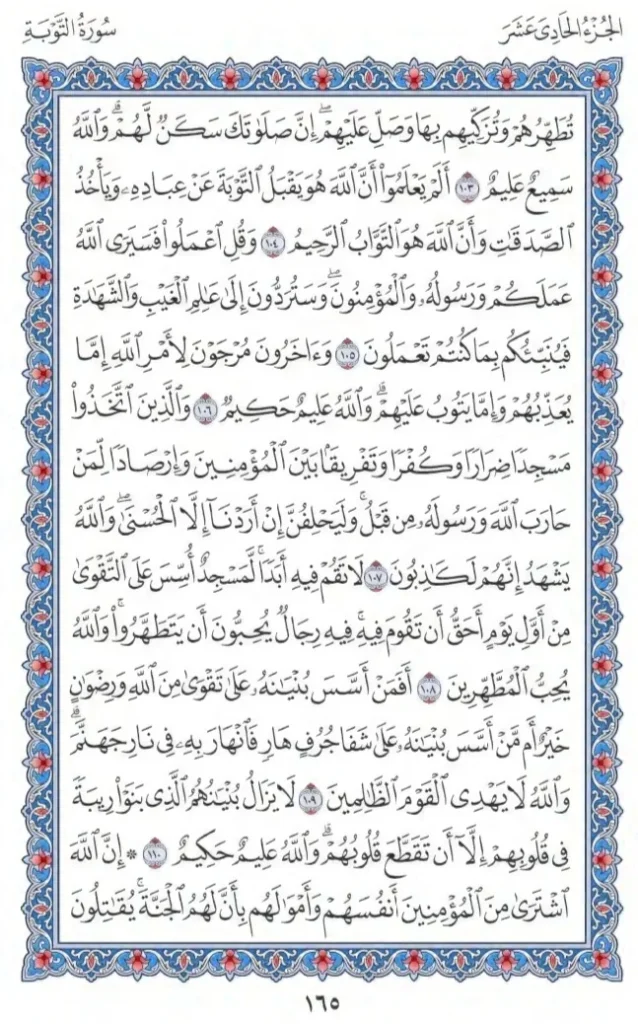 الجُزْءُ الحَادِىَ عَشَرَ
سُورَةُ التَّوْبَةِ
تُطَهِّرُهُمْ وَتُزَكِّيهِم بِهَا وَصَلِّ عَلَيْهِمْۖ إِنَّ صَلَوٰتَكَ سَكَنٌ لَّهُمْۗ وَٱللَّهُ
سَمِيعٌ عَلِيمٌ ١٠٣ أَلَمْ يَعْلَمُوٓا۟ أَنَّ ٱللَّهَ هُوَ يَقْبَلُ ٱلتَّوْبَةَ عَنْ عِبَادِهِۦ وَيَأْخُذُ
ٱلصَّدَقَٰتِ وَأَنَّ ٱللَّهَ هُوَ ٱلتَّوَّابُ ٱلرَّحِيمُ ١٠٤ وَقُلِ ٱعْمَلُوا۟ فَسَيَرَى ٱللَّهُ
عَمَلَكُمْ وَرَسُولُهُۥ وَٱلْمُؤْمِنُونَۖ وَسَتُرَدُّونَ إِلَىٰ عَٰلِمِ ٱلْغَيْبِ وَٱلشَّهَٰدَةِ
فَيُنَبِّئُكُم بِمَا كُنتُمْ تَعْمَلُونَ ١٠٥ وَءَاخَرُونَ مُرْجَوْنَ لِأَمْرِ ٱللَّهِ إِمَّا
يُعَذِّبُهُمْ وَإِمَّا يَتُوبُ عَلَيْهِمْۗ وَٱللَّهُ عَلِيمٌ حَكِيمٌ ١٠٦ وَٱلَّذِينَ ٱتَّخَذُوا۟
مَسْجِدًا ضِرَارًا وَكُفْرًا وَتَفْرِيقًۢا بَيْنَ ٱلْمُؤْمِنِينَ وَإِرْصَادًا لِّمَنْ
حَارَبَ ٱللَّهَ وَرَسُولَهُۥ مِن قَبْلُۚ وَلَيَحْلِفُنَّ إِنْ أَرَدْنَآ إِلَّا ٱلْحُسْنَىٰۖ وَٱللَّهُ
يَشْهَدُ إِنَّهُمْ لَكَٰذِبُونَ ١٠٧ لَا تَقُمْ فِيهِ أَبَدًاۚ لَّمَسْجِدٌ أُسِّسَ عَلَى ٱلتَّقْوَىٰ
مِنْ أَوَّلِ يَوْمٍ أَحَقُّ أَن تَقُومَ فِيهِۚ فِيهِ رِجَالٌ يُحِبُّونَ أَن يَتَطَهَّرُوا۟ۚ وَٱللَّهُ
يُحِبُّ ٱلْمُطَّهِّرِينَ ١٠٨ أَفَمَنْ أَسَّسَ بُنْيَٰنَهُۥ عَلَىٰ تَقْوَىٰ مِنَ ٱللَّهِ وَرِضْوَٰنٍ
خَيْرٌ أَم مَّنْ أَسَّسَ بُنْيَٰنَهُۥ عَلَىٰ شَفَا جُرُفٍ هَارٍ فَٱنْهَارَ بِهِۦ فِى نَارِ جَهَنَّمَۗ
وَٱللَّهُ لَا يَهْدِى ٱلْقَوْمَ ٱلظَّٰلِمِينَ ١٠٩ لَا يَزَالُ بُنْيَٰنُهُمُ ٱلَّذِى بَنَوْا۟ رِيبَةً
فِى قُلُوبِهِمْ إِلَّآ أَن تَقَطَّعَ قُلُوبُهُمْۗ وَٱللَّهُ عَلِيمٌ حَكِيمٌ ١١٠ * إِنَّ ٱللَّهَ
ٱشْتَرَىٰ مِنَ ٱلْمُؤْمِنِينَ أَنفُسَهُمْ وَأَمْوَٰلَهُم بِأَنَّ لَهُمُ ٱلْجَنَّةَۚ يُقَٰتِلُونَ
١٦٥